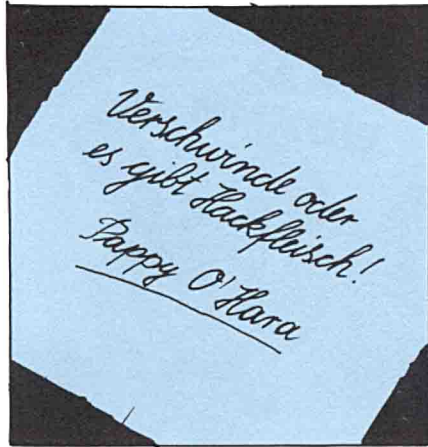 Verschwinde oder
es gibt Hackfleisch!
Pappy O'Hara